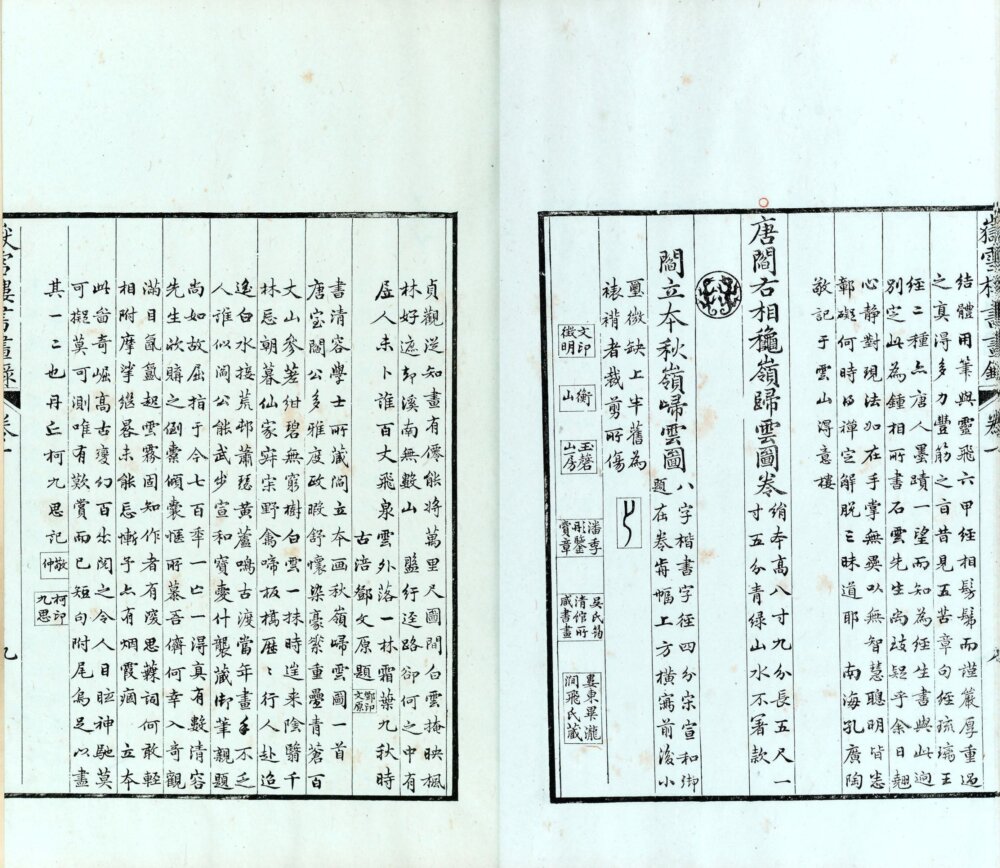 嶽雪樓書畫錄 卷一
結體用筆與靈飛六甲經相髣髴而謹嚴厚重過
之真得多力豐筋之旨昔見五苦章句經琉璃王
經二種点唐人墨蹟一望而知為經生書與此迥
別定此為鍾相所書石雲先生尚歧疑乎余日翹
心靜對現法如在手掌無異以無智慧聰明皆悉
郭礙何時得禪定解脫三昧道耶 南海孔廣陶
敬記于雲山得意樓
唐閻右相龝嶺歸雲圖卷 絹本高八寸九分長五尺一
寸五分青綠山水不署款
閻立本秋嶺歸雲圖 八字楷書字徑四分宋宣和御
題在卷前幅上方橫寫前後小
璽微缺上半舊為
裱褙者裁剪所傷
文印徵明
衡山
玉磬山房
潘季彤鑒賞章
吳氏筠清館所藏書畫
粵東畢瀧澗飛氏藏
貞觀從知畫有僊能將萬里尺圖間白雲掩映楓
林好遮却溪南無數山 盤行逕路卻何之中有
居人未卜誰百丈飛泉雲外落一林霜葉九秋時
古涪鄧文原題
鄧印文原
書清容學士所藏閻立本画秋嶺歸雲圖一首
唐室閻公多雅度政暇舒懷染豪素重疊青蒼百
丈山參差紺碧無窮樹白雲一抹時遮来陰翳千
林忘朝暮仙家寂寞野禽啼板橋歷ミ行人赴迢
迢白水接荒邨蕭瑟黃蘆鳴古渡當年畫手不乏
人誰似閻公能武步宣和寶愛什襲藏御筆親題
尚如故屈指于今七百季一亡一得真有數清容
先生欣購之倒橐傾囊愜所慕吾儕何幸入奇觀
滿目氤氳起雲霧固知作者有深思蕪詞何敢輕
相附摩挲繼晷未能忘慚予点有烟霞痼 立本
此啚奇崛高古變幻百出閱之令人目眩神馳莫
可擬莫可測唯有歎賞而已短句附尾烏足以盡
其一二也丹丘柯九思記
敬仲
柯印九思
嶽雪樓書畫錄 卷一 九